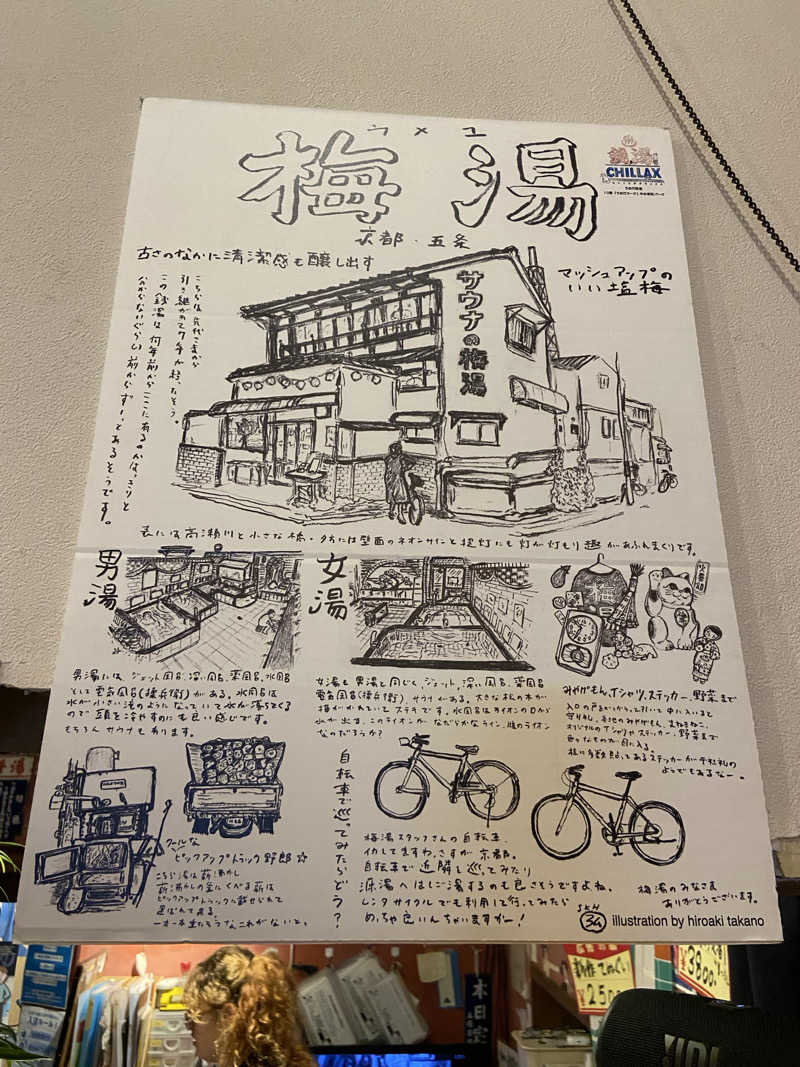 ウメユ
梅湯
銭湯
CHILLAX
京都・五条
古さのなかに清潔感も醸し出す
マッシュアップの
いい塩梅
サウナの梅湯
こちらは先代さまから
引き継がれて7年が経ったそう。
この銭湯は何年前からここに有るのかはっきりと
分からないぐらい前からずーっとあるそうです。
表には高瀬川と小さな橋・夕方には壁面のネオンサインと提灯にも灯が灯もり趣があふんまくりです。
男湯
女湯
男湯には、ジェット風呂、深い風呂、薬風呂、水風呂
そして電気風呂(揉兵衛)がある。水風呂は
水が小さい滝のようになっていて水が落ちてくる
ので頭を冷やすのにも良い感じです。
もちろんサウナもあります。
女湯も男湯と同じく、ジェット、深い風呂、薬風呂
電気風呂(揉兵衛)、サウナがある。大きな松の木が
描かれていてステキです。水風呂はライオンの口から
水が出ます。このライオンがなだらかなライン、雌のライオン
なのだろうか?
みやげもん、Tシャツ、ステッカー、野菜まで
入口の戸をガラガラって引いて中に入ると
オリジナルのTシャツやステッカー、野菜まで
色々なものが目に入る。
ようでもあるなー。
クールな
ピックアップトラック野郎☆
こちら湯は薪沸かし
薪沸かしの釜にくがる薪は
ピックアップトラックに載せられて
運ばれて来る。
自転車で巡ってみたらどう?
梅湯スタッフさんの自転車、
イカしてますわ。さすが京都。
自転車で近隣を巡ってみたり
源湯へはしご湯するのも良さそうですよね。
レンタサイクルでも利用して行ってみたら
めっちゃ良いんちゃいますかー!
梅湯のみなさま
ありがとうございます。
34
illustration by hiroaki takano
本日定
3800
250
JBL